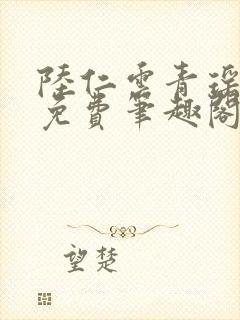 陸仁雲青瑤
免費筆趣閣
望楚